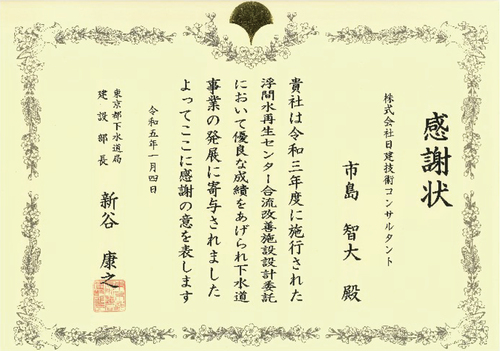 感謝状
株式会社日建技術コンサルタント
市島 智大 殿
貴社は令和三年度に施行された
浮間水再生センター合流改善施設設計委託
において優良な成績をあげられ下水道
事業の発展に寄与されました
よってここに感謝の意を表します
令和五年一月四日
東京都下水道局
建設部長 新谷 康之